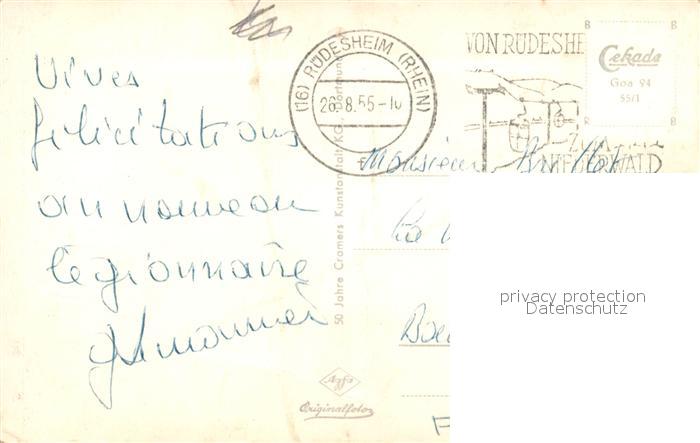 Vives
félicitations
au nouveau
légionnaire
(16) RÜDESHEIM (RHEIN)
26.8.55-10
f
VON RÜDESHE
NIEDERWALD
B B
Cekade
Goa 94
55/1
R R
Monsieur
La
F
50 Jahre Cramers Kunstanstalt KG., Dortmund
Agfa
Originalfoto
privacy protection
Datenschutz